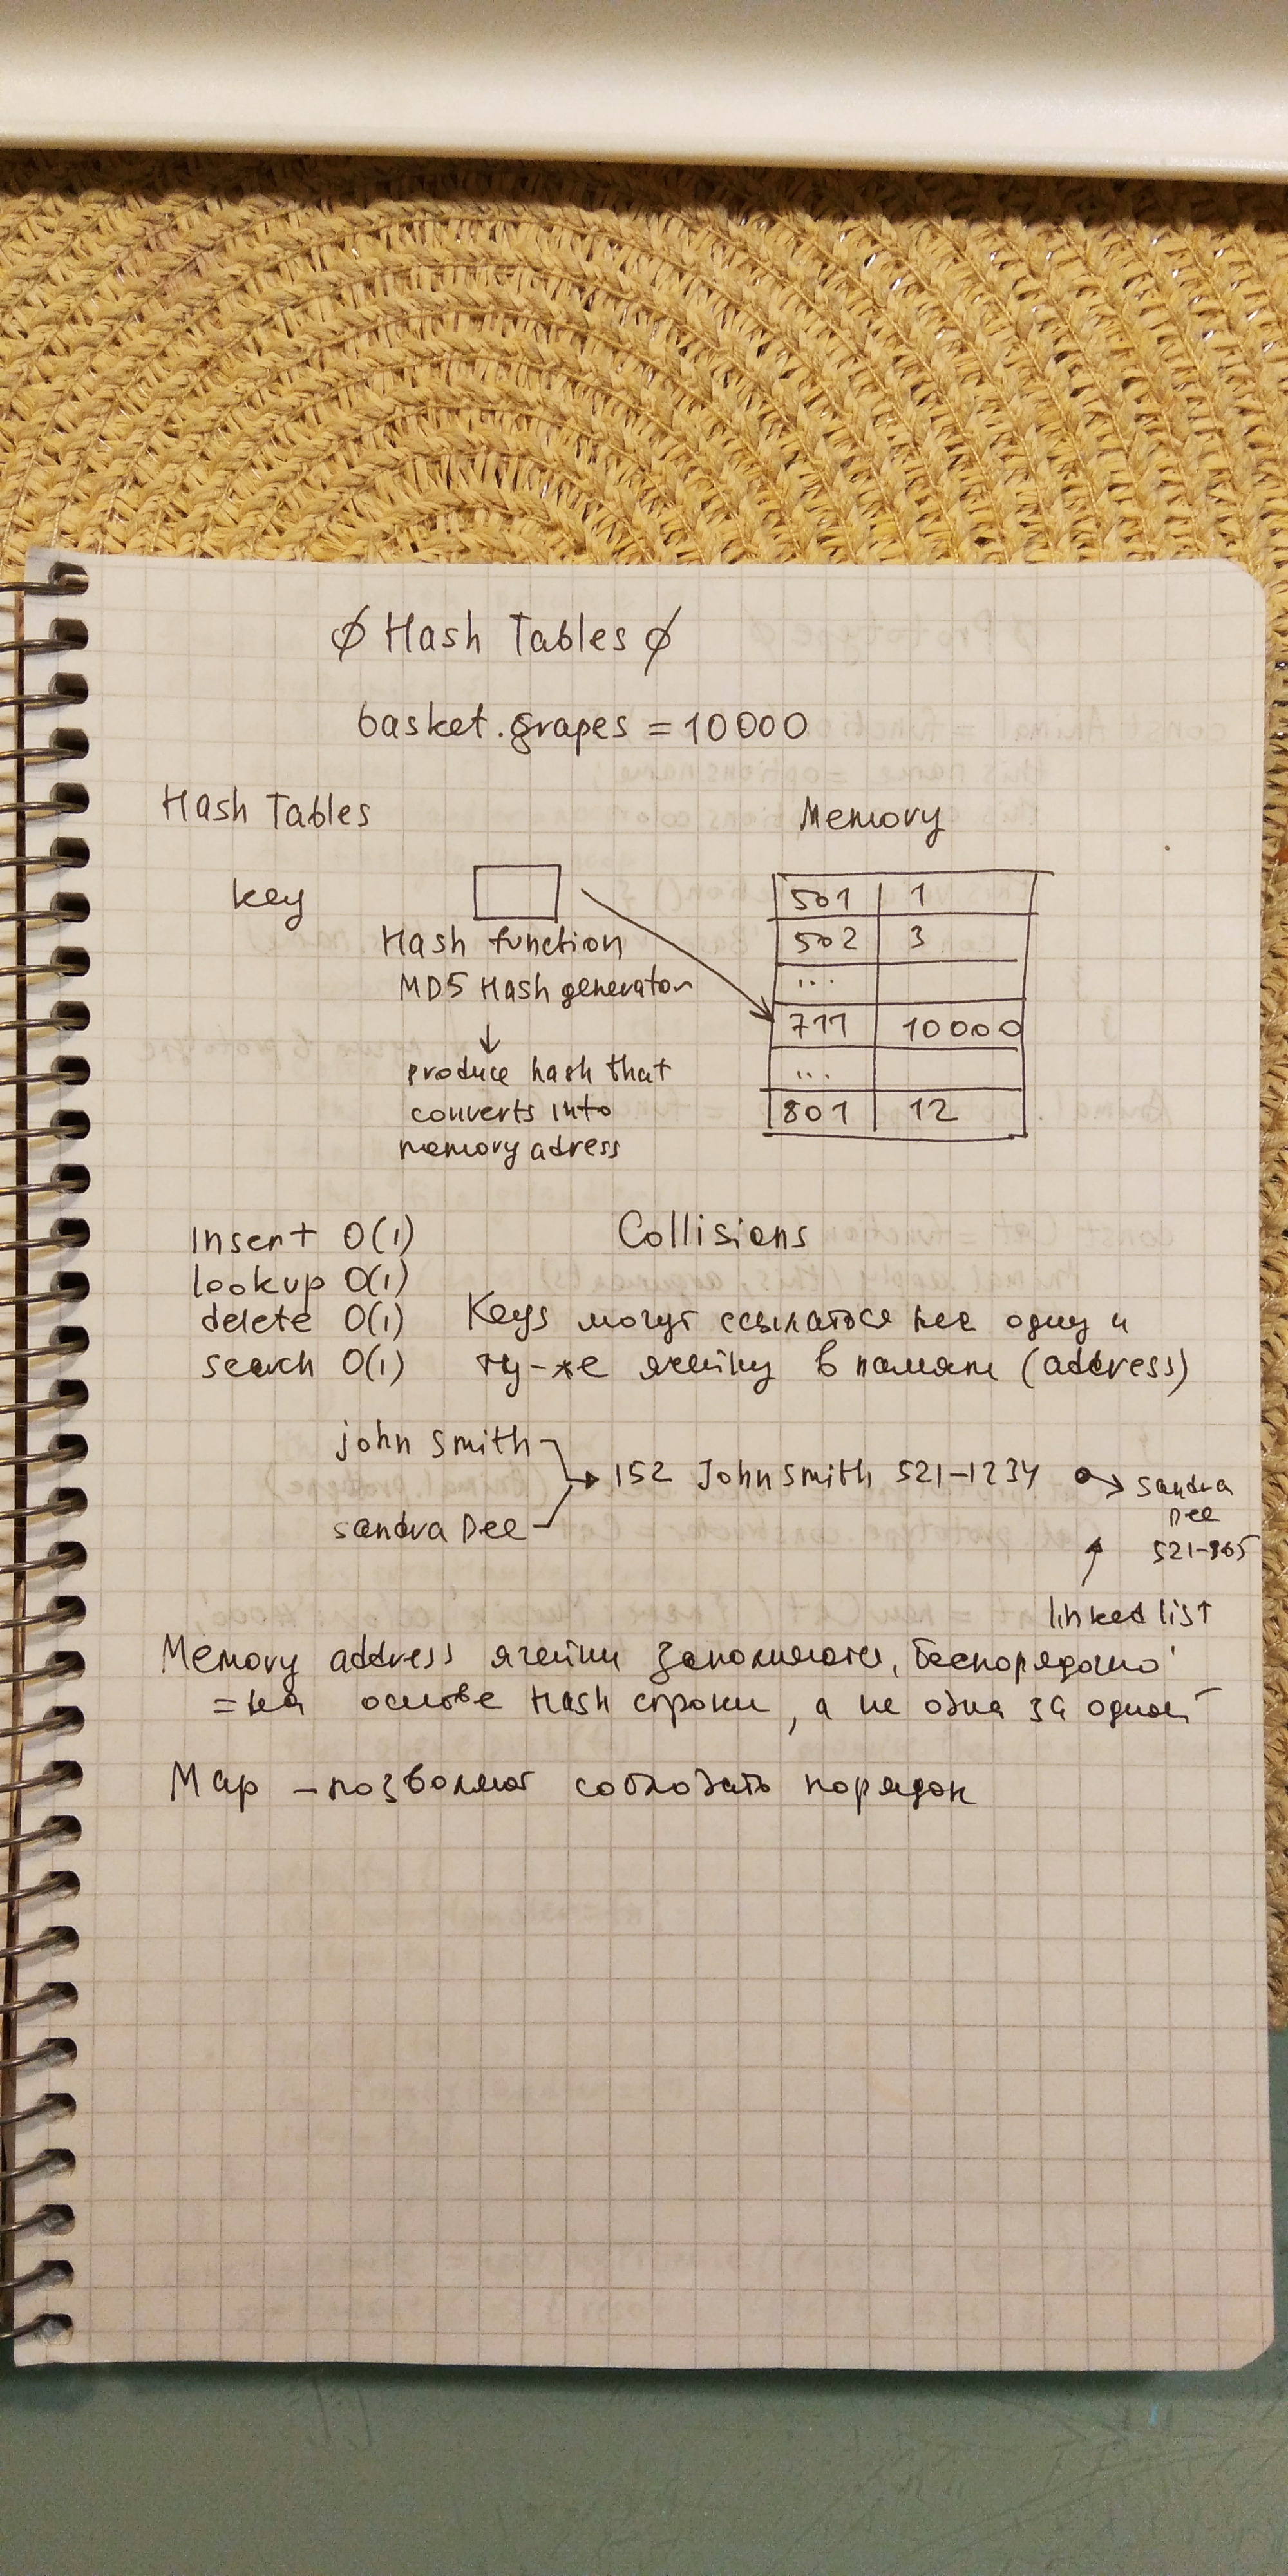 ∅ Hash Tables ∅
basket.grapes = 10000
Hash Tables
Memory
key
Hash function
MD5 Hash generator
↓
produce hash that
converts into
memory adress
501 1
502 3
...
711 10000
...
801 12
Insert O(1)
lookup O(1)
delete O(1)
search O(1)
Collisions
Keys могут ссылаться на одну и
ту-же ячейку в памяти (address)
john smith
sandra Dee
152 John smith 521-1234
sandra
Dee
linked list
Memory address ячейки заполняются, беспорядочно
= на основе Hash строки, а не одна за одной
Map - позволяют соблюдать порядок